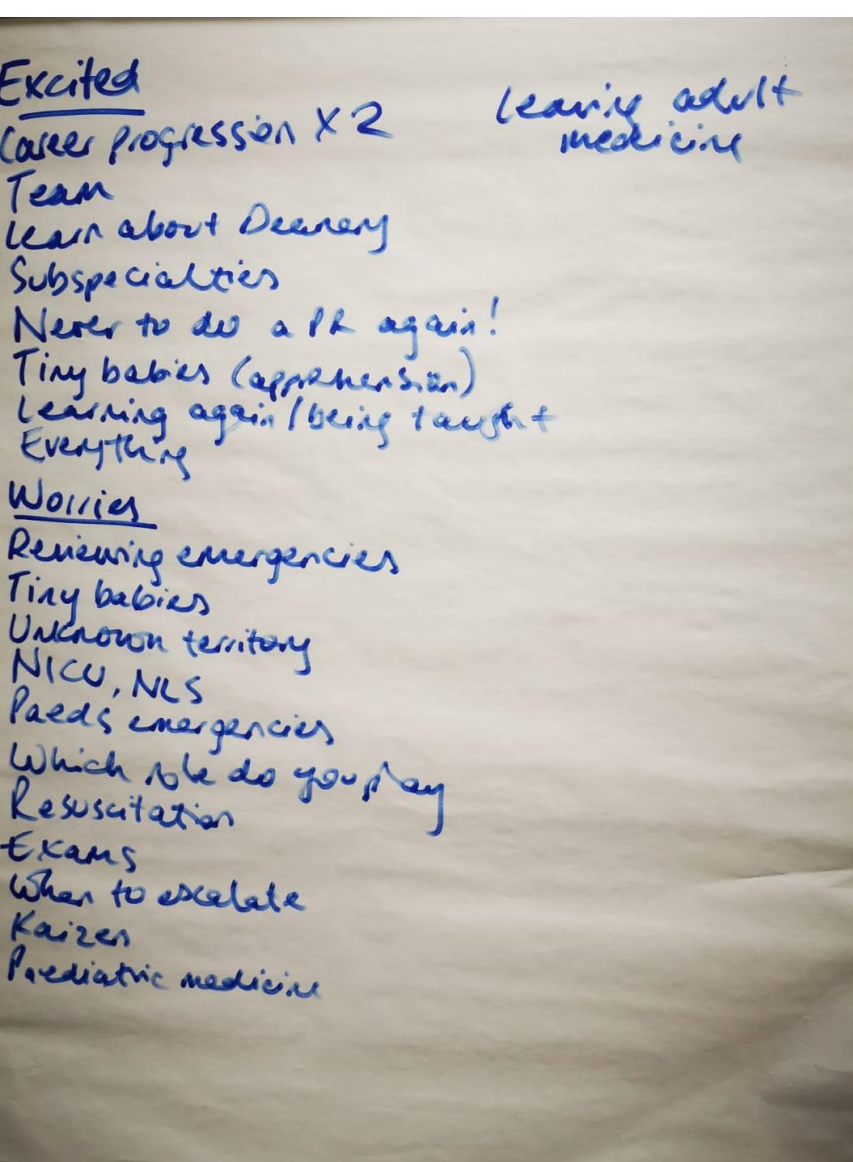 Excited
Career progression X 2
leaving adult
medicine
Team
Learn about Deanery
Subspecialties
Never to do a PR again!
Tiny babies (apprehension)
Learning again / being taught
Everything
Worries
Reviewing emergencies
Tiny babies
Unknown territory
NICU, NLS
Paeds emergencies
Which role do you play
Resuscitation
Exams
When to escalate
Kaizen
Paediatric medicine